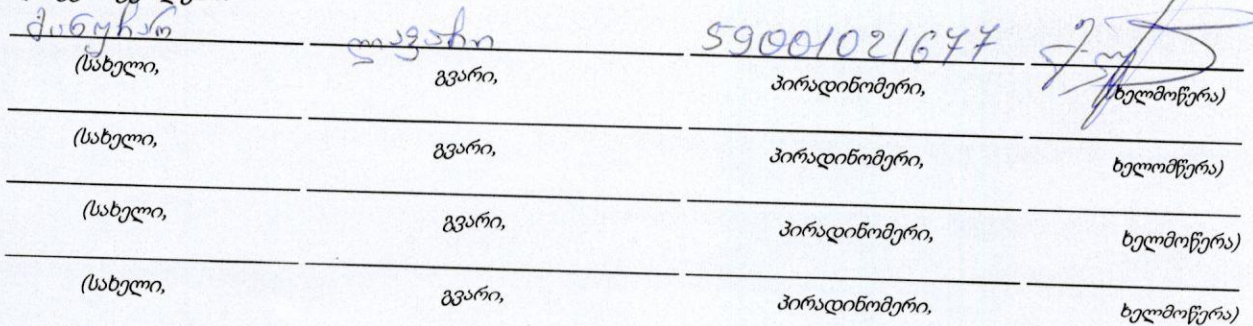 მანუჩარ ლავარი 59001021677
(სახელი, გვარი, პირადინომერი, ხელმოწერა)
(სახელი, გვარი, პირადინომერი, ხელომწერა)
(სახელი, გვარი, პირადინომერი, ხელმოწერა)
(სახელი, გვარი, პირადინომერი, ხელმოწერა)